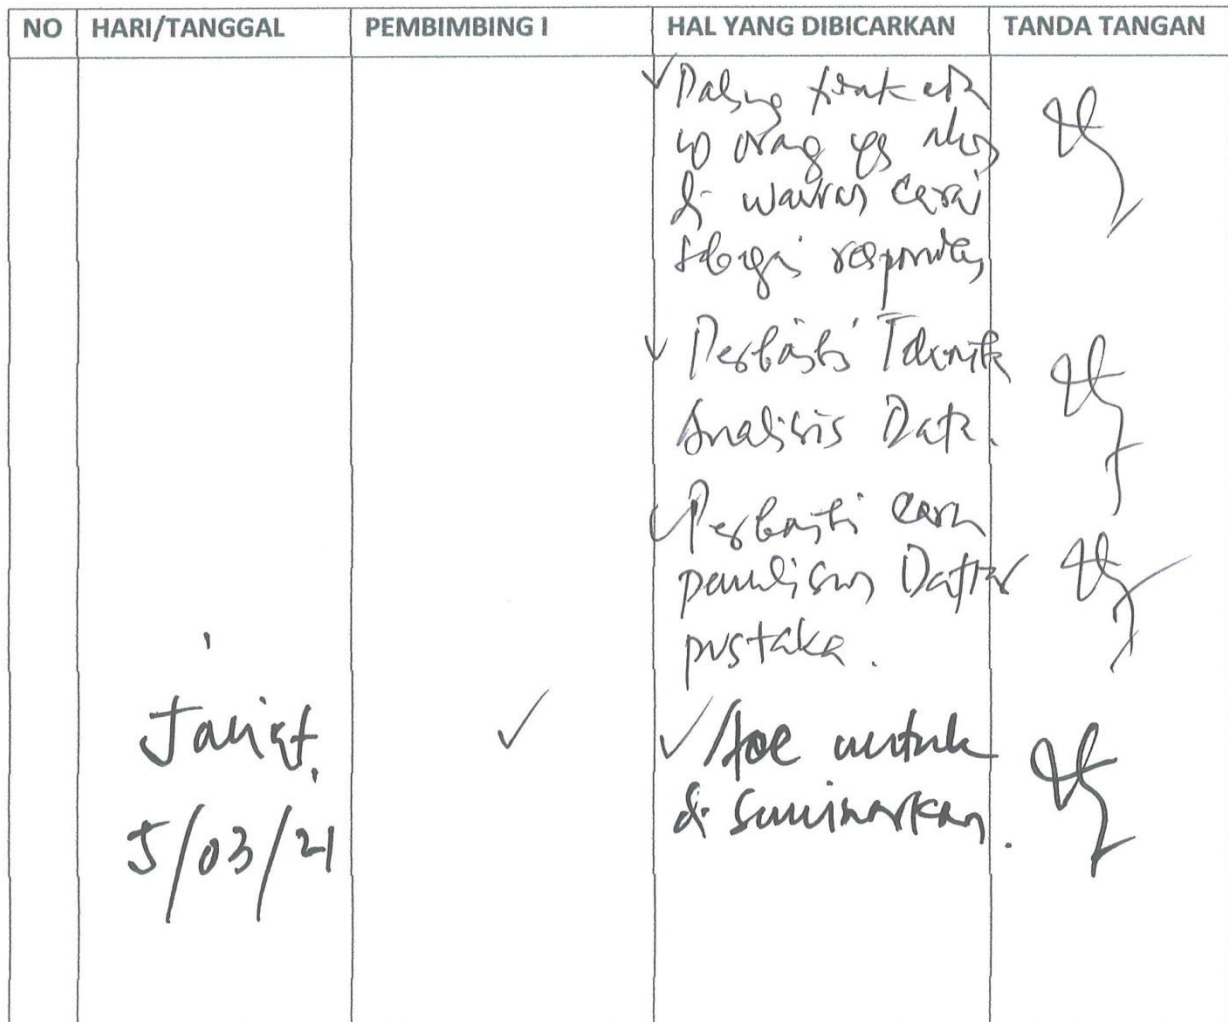 NO HARI/TANGGAL PEMBIMBING I HAL YANG DIBICARKAN TANDA TANGAN
✓ Paling
40 orang yg
di cerai
sebagai responden
✓ Perbaiki Teknik
Analisis Data.
✓ Perbaiki cara
penulisan Daftar
pustaka.
Jum'at, ✓ ✓ Acc untuk
5/03/21 di Seminarkan.